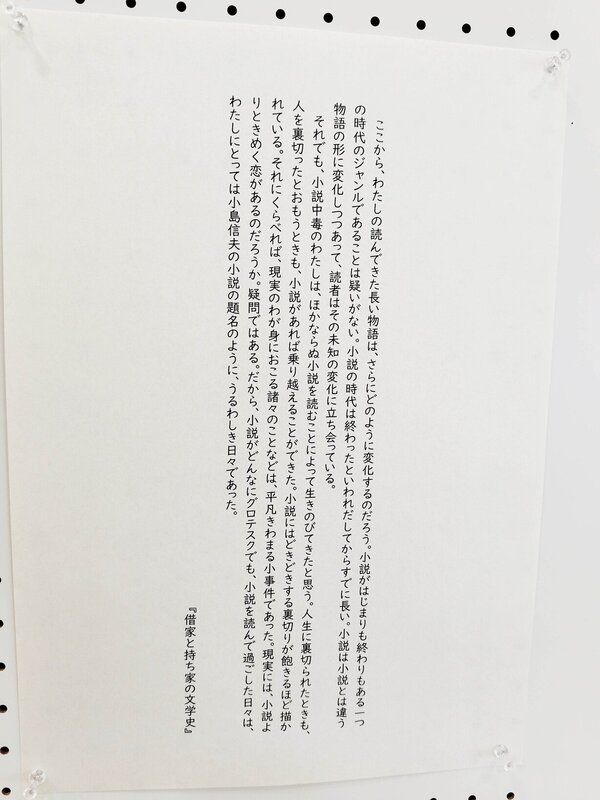 ここから、わたしの読んできた長い物語は、さらにどのように変化するのだろう。小説がはじまりも終わりもある一つ
の時代のジャンルであることは疑いがない。小説の時代は終わったといわれだしてからすでに長い。小説は小説とは違う
物語の形に変化しつつあって、読者はその未知の変化に立ち会っている。
それでも、小説中毒のわたしは、ほかならぬ小説を読むことによって生きのびてきたと思う。人生に裏切られたときも、
人を裏切ったとおもうときも、小説があれば乗り越えることができた。小説にはどきどきする裏切りが飽きるほど描か
れている。それにくらべれば、現実のわが身におこる諸々のことなどは、平凡きわまる小事件であった。現実には、小説よ
りときめく恋があるのだろうか。疑問ではある。だから、小説がどんなにグロテスクでも、小説を読んで過ごした日々は、
わたしにとっては小島信夫の小説の題名のように、うるわしき日々であった。
『借家と持ち家の文学史』